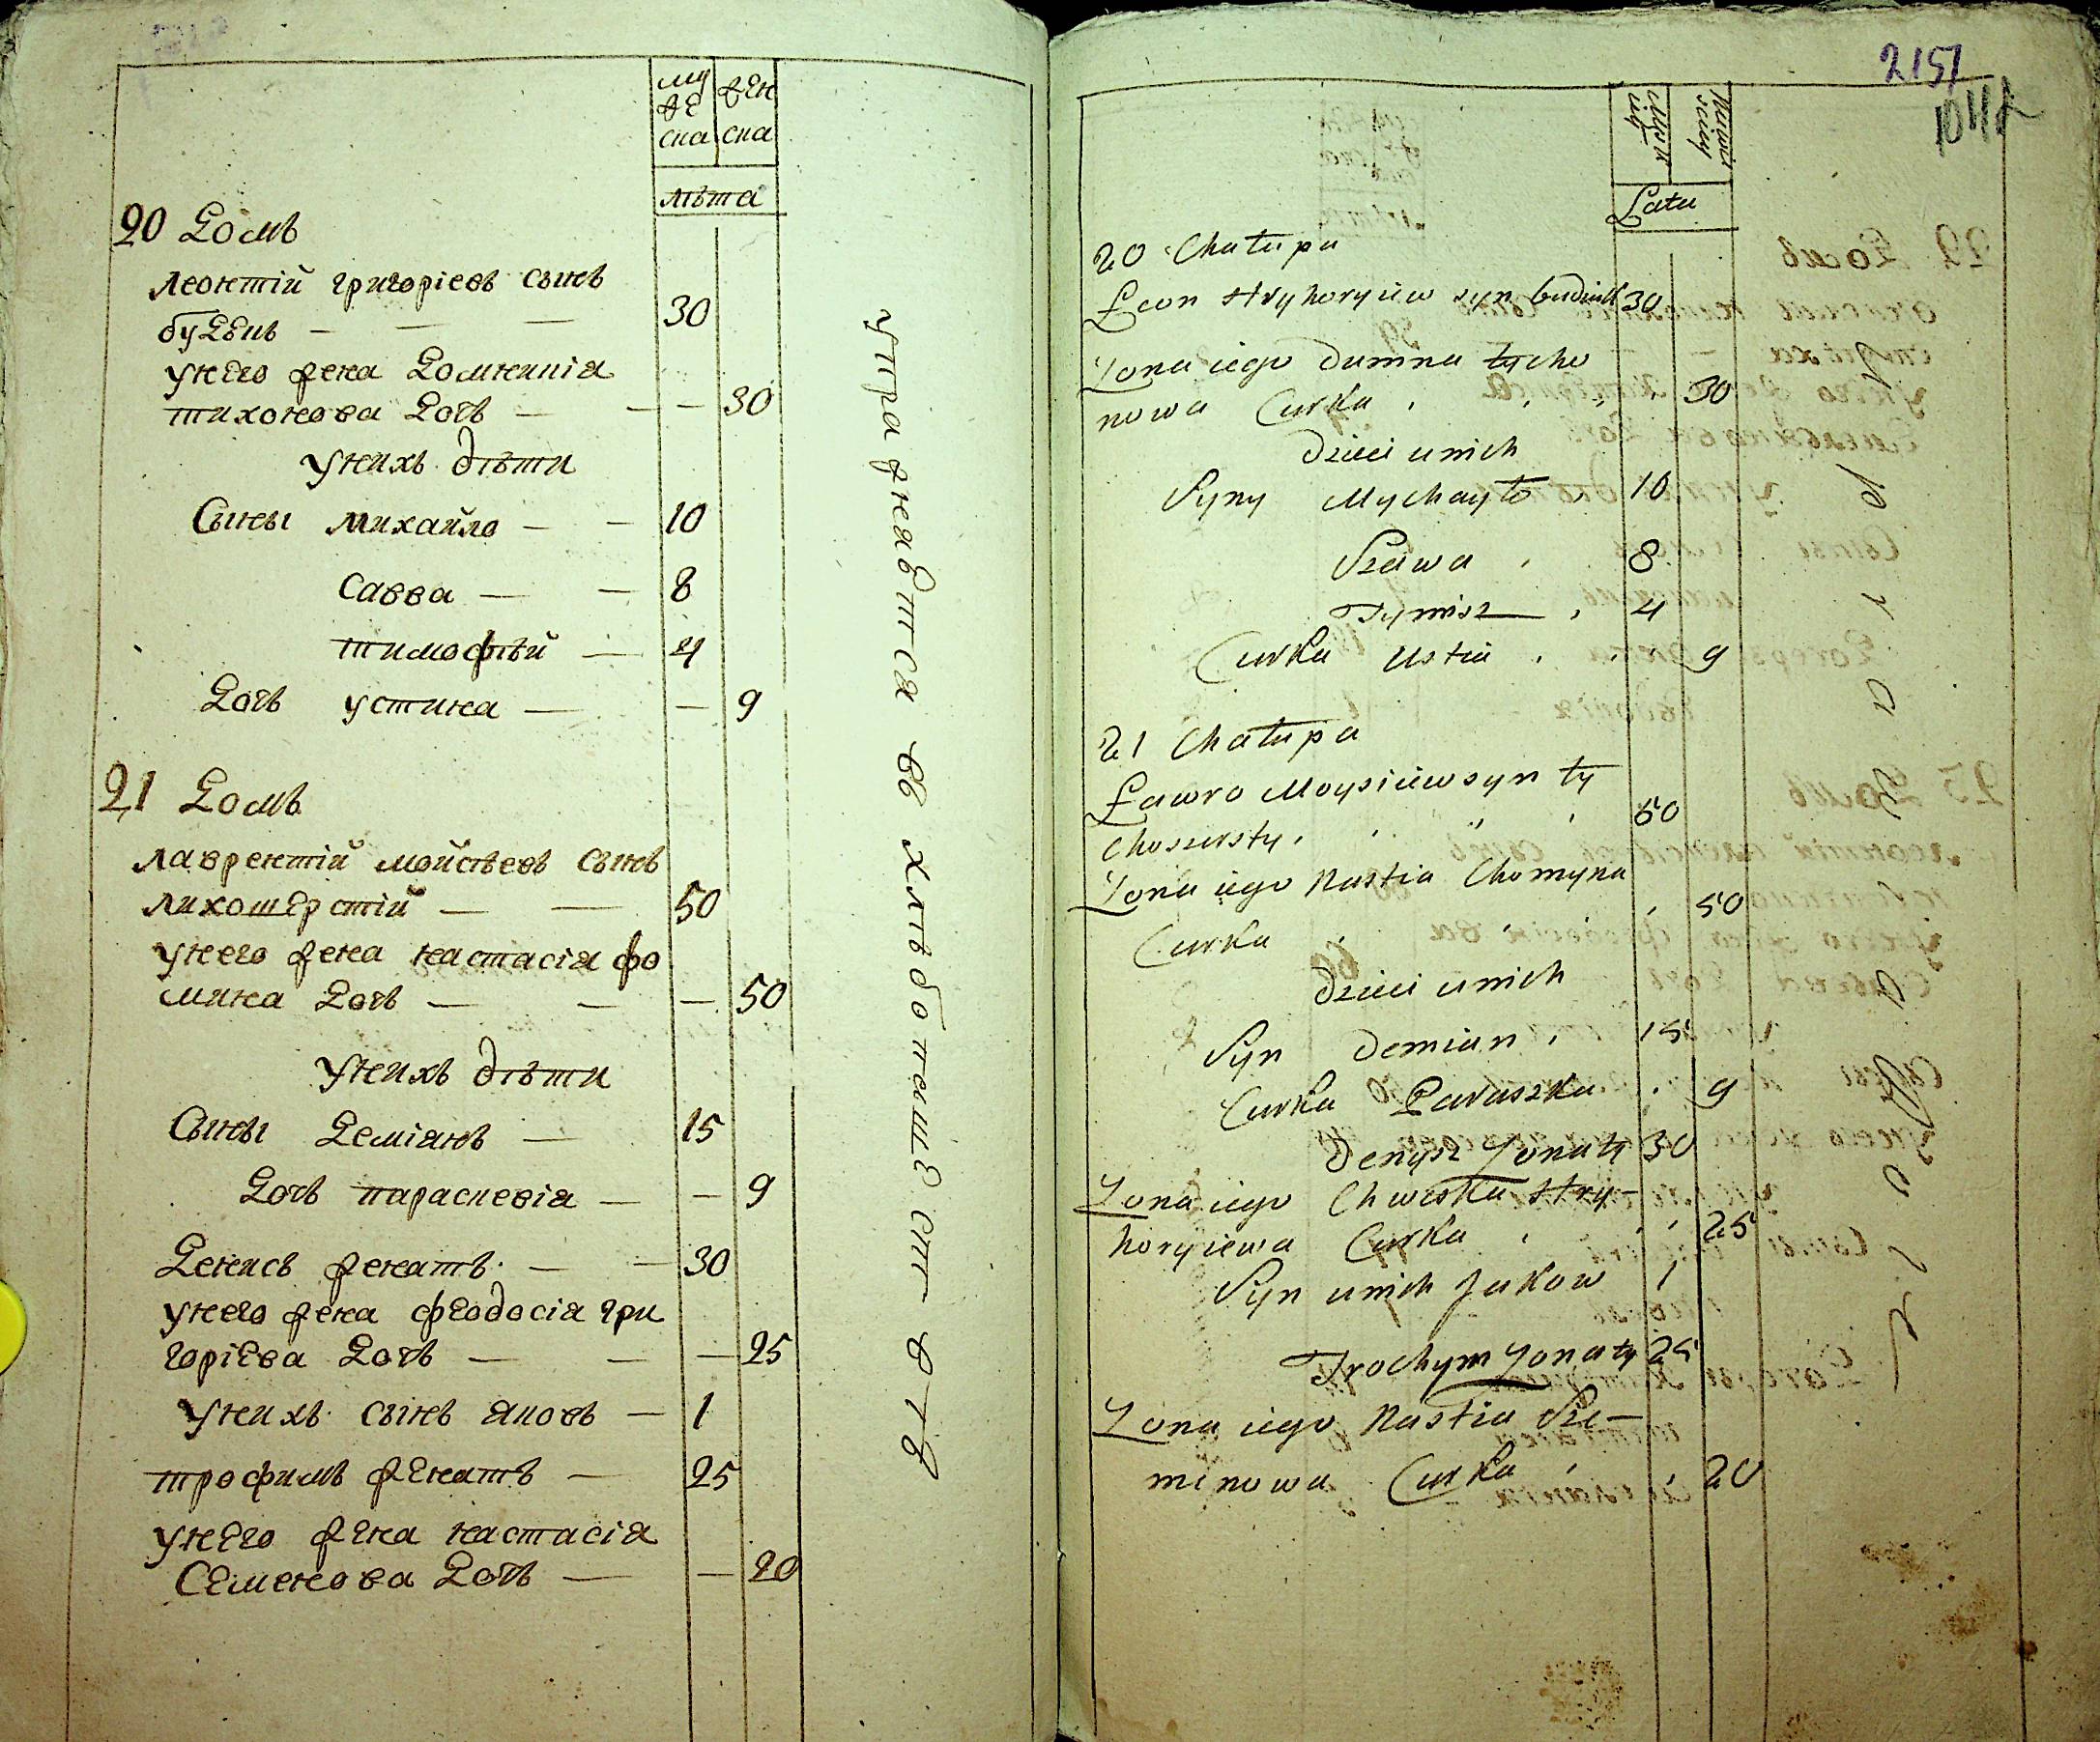 му
же
ска
жен
ска
лѣта
20 Домъ
леонтій григоріевъ сынъ
будѣнь — — — 30
унего жена Домникія
тихонова Дочь — — — 30
унихъ дѣти
Сыны михайло — — 10
Савва — — 8
тимофѣй — 4
Дочь устина — — 9
21 Домъ
лаврентій мойсѣевъ сынъ
лихошерстій — — 50
унего жена настасія фо
мина Дочь — — — 50
унихъ дѣти
Сыны Деміянъ — 15
Дочь параскевія — — 9
Денисъ женатъ — — 30
унего жена феодосія гри
горіева Дочь — — — 25
унихъ сынъ яковъ — 1
трофимъ женатъ — 25
унего жена настасія
Семенова Дочь — — 20
упражняются въ хлѣбопашествѣ
2151
Latu
20 Chałupa
Leon Hryhoryiew syn 30
Zona iego Dumna tycho
nowa Curka 30
Dzieci unich
Syny Mychayło 10
Szawa 8
Tymisz 4
Curka Ustia 9
21 Chałupa
Ławro Moysiiew syn ły
choszersty 50
Zona iego Nastia Chomyna
Curka 50
Dzieci unich
Syn Demian 15
Curka Paraszka 9
Denysz Zonaty 30
Zona iego Chweska Hry-
horyiewa Curka 25
Syn unich Jakow 1
Trochym Zonaty 25
Zona iego Nastia Sze-
menowa Curka 20